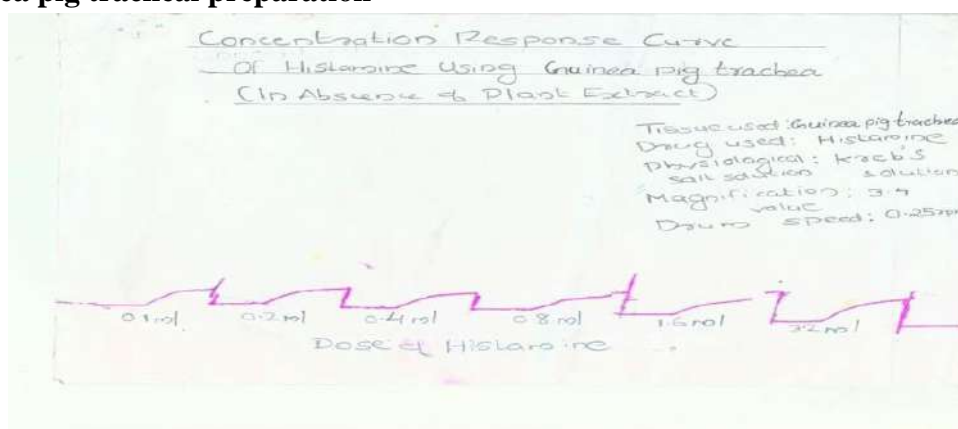 ea pig tracheal preparation
Concentration Response Curve
Of Histamine Using Guinea pig trachea
(In Absence of Plant Extract)
Tissue used: Guinea pig trachea
Drug used: Histamine
Physiological: Kreb's
salt solution solution
Magnification: 3.4
value
Drum speed: 0.25rpm
0.1 ml 0.2 ml 0.4 ml 0.8 ml 1.6 ml 3.2 ml
Dose of Histamine